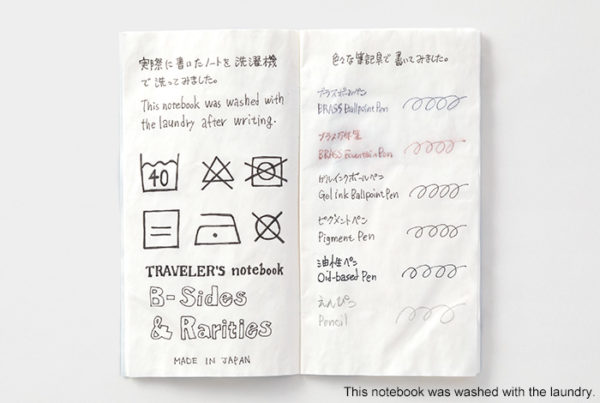 実際に書いたノートを洗濯機
で洗ってみました。
This notebook was washed with
the laundry after writing.
40
TRAVELER'S notebook
B-Sides
& Rarities
MADE IN JAPAN
色々な筆記具で書いてみました。
ブラスボールペン
BRASS Ballpoint Pen
ブラス万年筆
BRASS Fountain Pen
ゲルインクボールペン
Gel ink Ballpoint Pen
ピグメントペン
Pigment Pen
油性ペン
Oil-based Pen
えんぴつ
Pencil
This notebook was washed with the laundry.